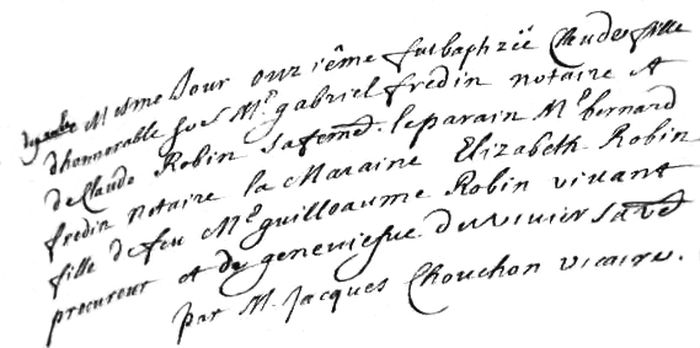 Mesme Jour onzième fut baptizéé Claude fille
d'honnorable hoe Mre gabriel fredin notaire et
de Claude Robin sa feme. le parain Mre bernard
fredin notaire la Maraine Elizabeth Robin
fille de feu Mre guilloaume Robin vivant
procureur et de geneviefve duvivier sa ve
par M. Jacques Chouchon vicaire.